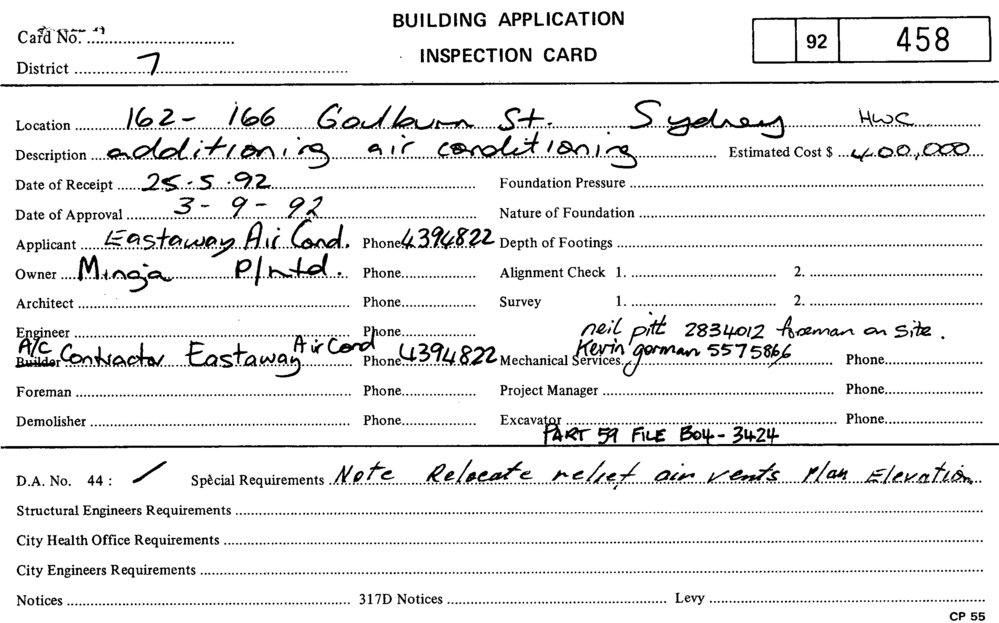 BUILDING APPLICATION
Card No.
92 458
INSPECTION CARD
District 7
Location 162- 166 Goulburn St. Sydney HWC
Description additioning air conditioning Estimated Cost $ 400,000
Date of Receipt 25.5.92 Foundation Pressure
Date of Approval 3-9-92 Nature of Foundation
Applicant Eastaway Air Cond. Phone 4394822 Depth of Footings
Owner Minoja P/Ltd. Phone Alignment Check 1. 2.
Architect Phone Survey 1. 2.
Engineer Phone neil pitt 2834012 foreman on site.
A/C Contractor Eastaway Air Cond
Builder Phone 4394822 Mechanical Services Kevin gorman 5575866 Phone
Foreman Phone Project Manager Phone
Demolisher Phone Excavator Phone
PART 59 FILE B04-3424
D.A. No. 44: / Special Requirements Note Relocate relief air vents Plan Elevation
Structural Engineers Requirements
City Health Office Requirements
City Engineers Requirements
Notices 317D Notices Levy
CP 55